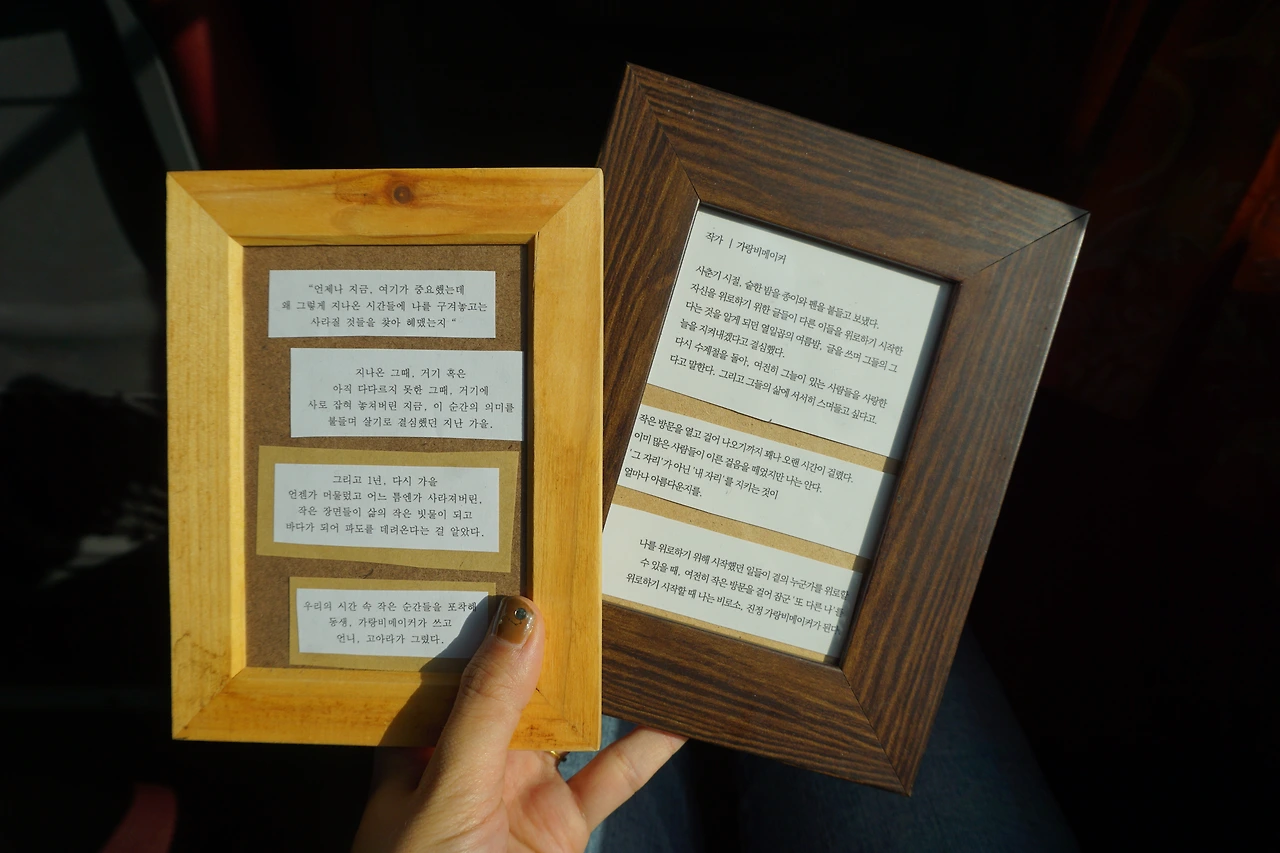 "언제나 지금, 여기가 중요했는데
왜 그렇게 지나온 시간들에 나를 구겨놓고는
사라질 것들을 찾아 헤맸는지 "
지나온 그때, 거기 혹은
아직 다다르지 못한 그때, 거기에
사로 잡혀 놓쳐버린 지금, 이 순간의 의미를
붙들며 살기로 결심했던 지난 가을.
그리고 1년, 다시 가을
언젠가 머물렀고 어느 틈엔가 사라져버린,
작은 장면들이 삶의 작은 빗물이 되고
바다가 되어 파도를 데려온다는 걸 알았다.
우리의 시간 속 작은 순간들을 포착해
동생, 가랑비메이커가 쓰고
언니, 고아라가 그렸다.
작가 | 가랑비메이커
사춘기 시절, 숱한 밤을 종이와 펜을 붙들고 보냈다.
자신을 위로하기 위한 글들이 다른 이들을 위로하기 시작한
다는 것을 알게 되던 열일곱의 여름밤, 글을 쓰며 그들의 그
늘을 지켜내겠다고 결심했다.
다시 수계절을 돌아, 여전히 그늘이 있는 사람들을 사랑한
다고 말한다. 그리고 그들의 삶에 서서히 스며들고 싶다고.
작은 방문을 열고 걸어 나오기까지 꽤나 오랜 시간이 걸렸다.
이미 많은 사람들이 이른 걸음을 떼었지만 나는 안다.
'그 자리'가 아닌 '내 자리'를 지키는 것이
얼마나 아름다운지를.
나를 위로하기 위해 시작했던 일들이 곁의 누군가를 위로할
수 있을 때, 여전히 작은 방문을 걸어 잠군 '또 다른 나'를
위로하기 시작할 때 나는 비로소, 진정 가랑비메이커가 된다.